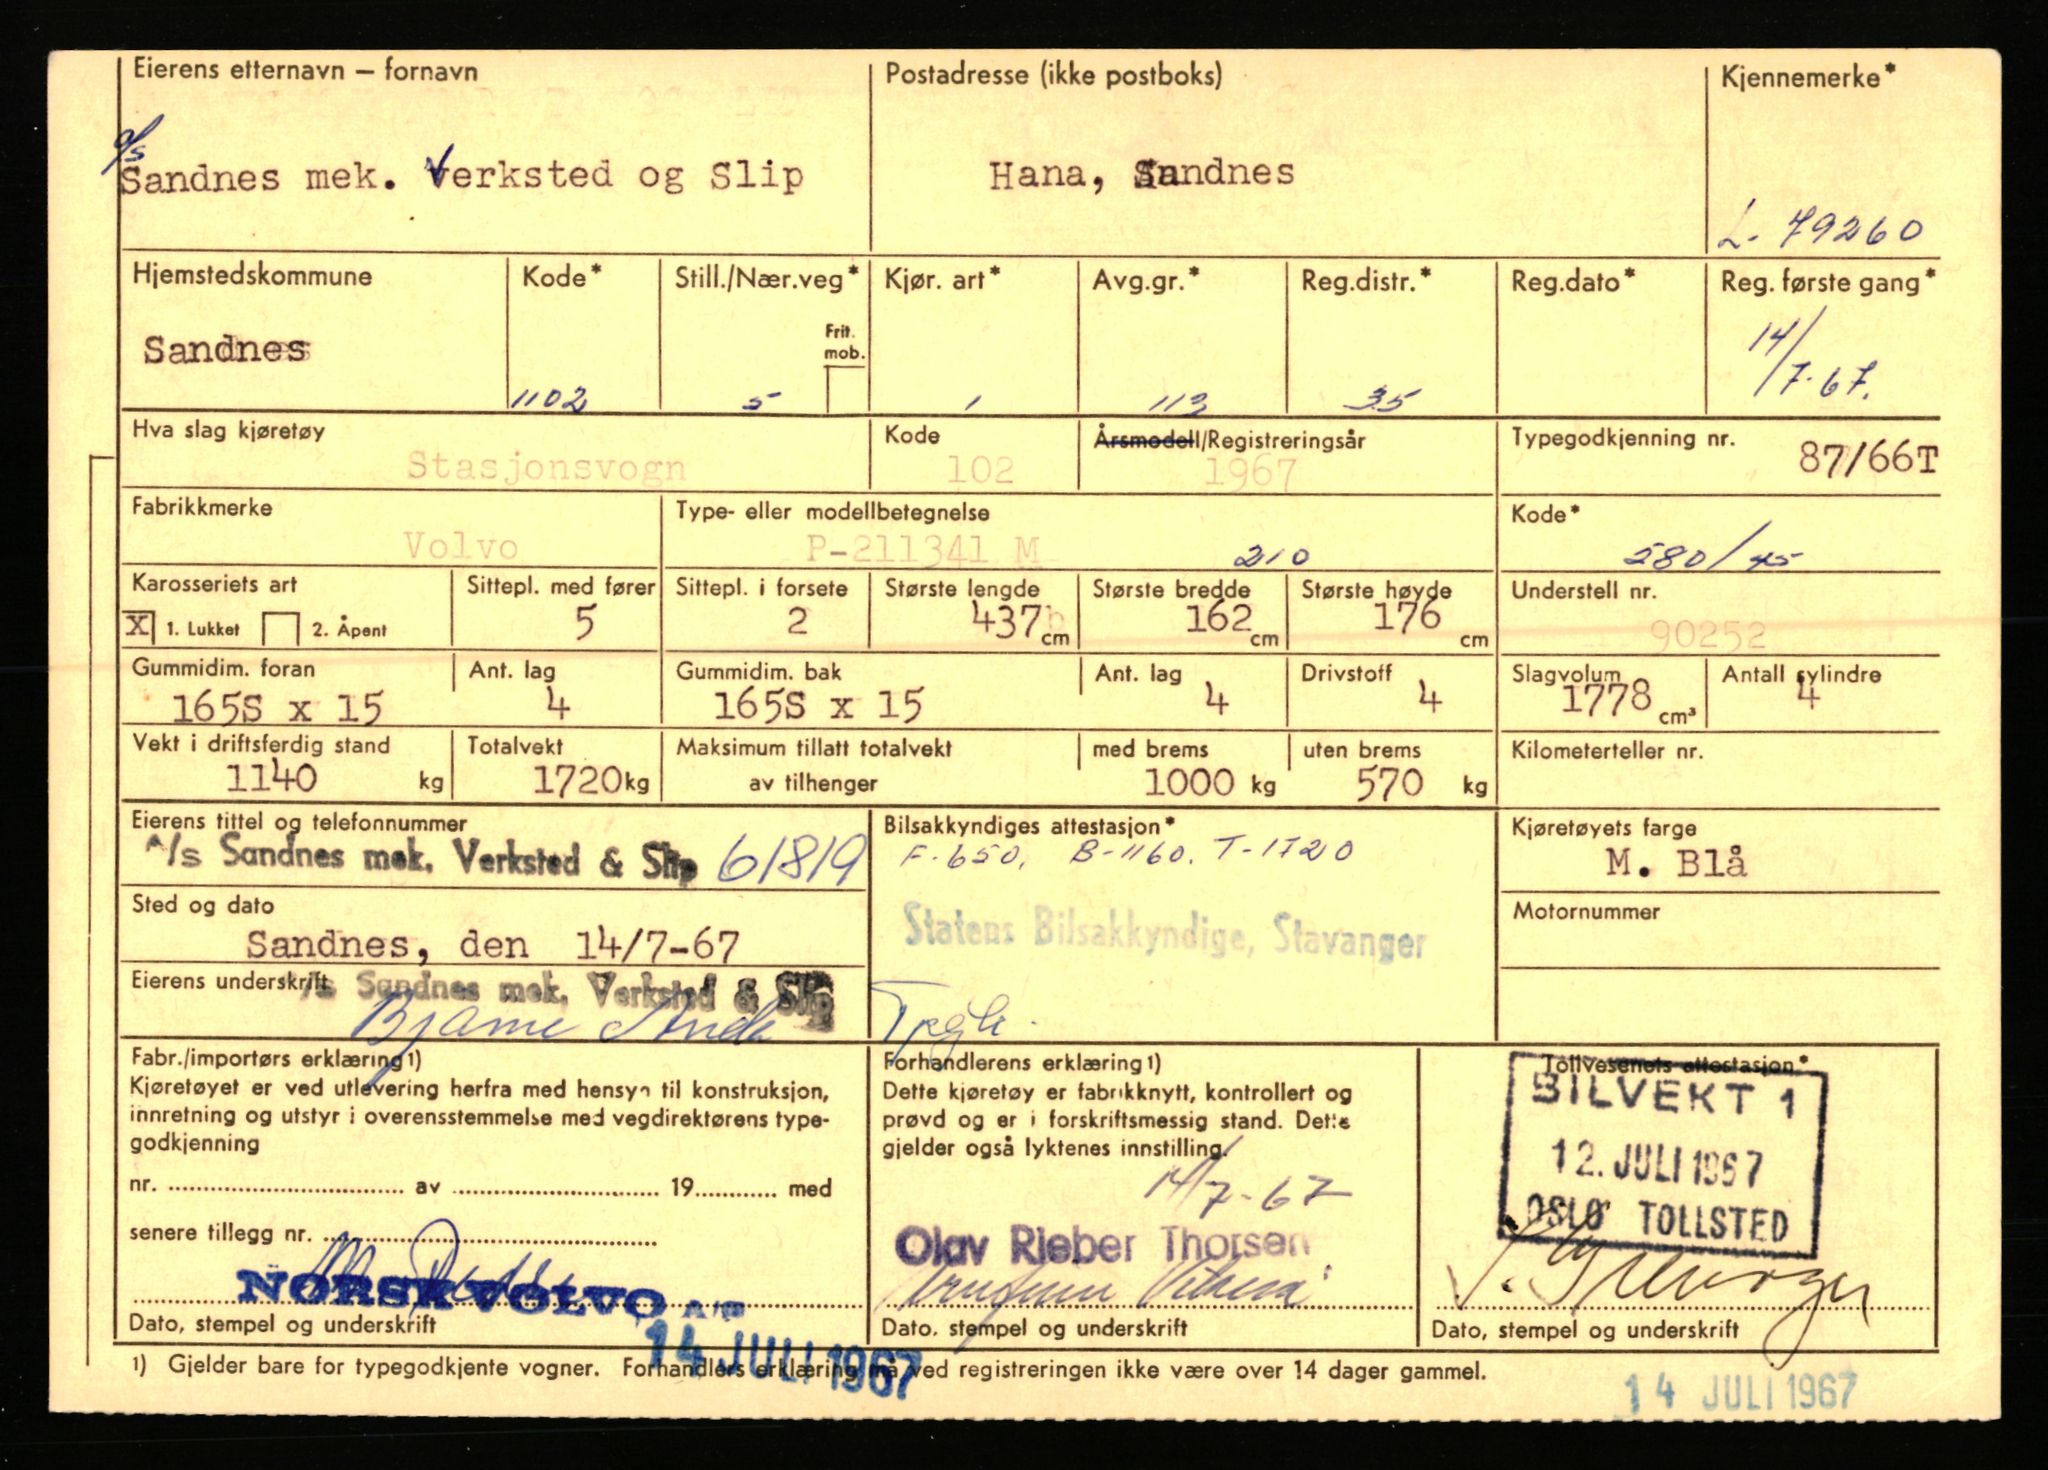 Eierens etternavn – fornavn
Postadresse (ikke postboks)
Kjennemerke*
a/s
Sandnes mek. Verksted og Slip
Hana, Sandnes
L- 79260
Hjemstedskommune
Kode*
Still./Nær.veg*
Kjør. art*
Avg.gr.*
Reg.distr.*
Reg.dato*
Reg. første gang*
Frit. mob.
Sandnes
1102
5
1
113
35
14/7-67.
Hva slag kjøretøy
Kode
Årsmodell/Registreringsår
Typegodkjenning nr.
Stasjonsvogn
102
1967
87/66T
Fabrikkmerke
Type- eller modellbetegnelse
Kode*
Volvo
P-211341 M
210
580/45
Karosseriets art
Sittepl. med fører
Sittepl. i forsete
Største lengde
Største bredde
Største høyde
Understell nr.
X 1. Lukket
2. Åpent
5
2
437 cm
162 cm
176 cm
90252
Gummidim. foran
Ant. lag
Gummidim. bak
Ant. lag
Drivstoff
Slagvolum
Antall sylindre
165S x 15
4
165S x 15
4
4
1778 cm³
4
Vekt i driftsferdig stand
Totalvekt
Maksimum tillatt totalvekt
med brems
uten brems
Kilometerteller nr.
1140 kg
1720 kg
av tilhenger
1000 kg
570 kg
Eierens tittel og telefonnummer
Bilsakkyndiges attestasjon*
Kjøretøyets farge
A/s Sandnes mek. Verksted & Slip 61819
F-650, B-1160. T-1720
M. Blå
Sted og dato
Motornummer
Sandnes, den 14/7-67
Statens Bilsakkyndige, Stavanger
Eierens underskrift
A/s Sandnes mek. Verksted & Slip
Bjarne
Fabr./importørs erklæring1)
Kjøretøyet er ved utlevering herfra med hensyn til konstruksjon,
innretning og utstyr i overensstemmelse med vegdirektørens type-
godkjenning
nr. av 19 med
senere tillegg nr.
NORSK VOLVO A/S
Dato, stempel og underskrift
14 JULI 1967
Forhandlerens erklæring1)
Dette kjøretøy er fabrikknytt, kontrollert og
prøvd og er i forskriftsmessig stand. Dette
gjelder også lyktenes innstilling.
14/7-67
Olav Rieber Thorsen
Dato, stempel og underskrift
Tollvesenets attestasjon*
BILVEKT 1
12. JULI 1967
OSLO TOLLSTED
Dato, stempel og underskrift
1) Gjelder bare for typegodkjente vogner. Forhandlers erklæring må ved registreringen ikke være over 14 dager gammel.
14 JULI 1967